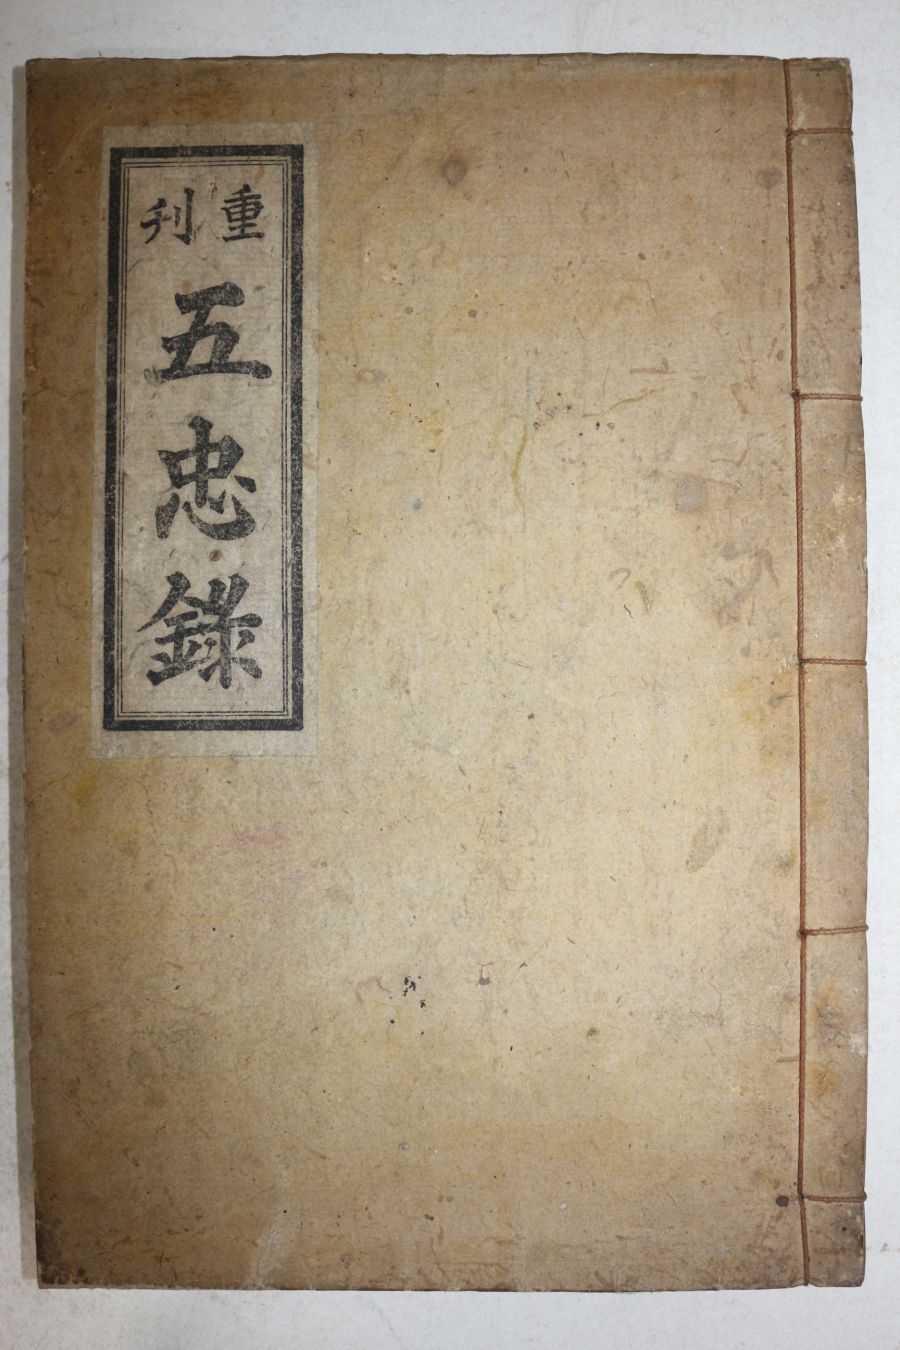 重刊
五忠錄